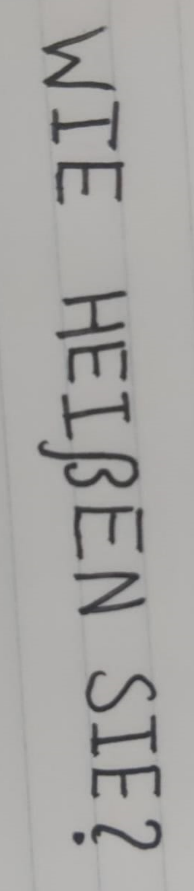 WIE HEIßEN SIE?